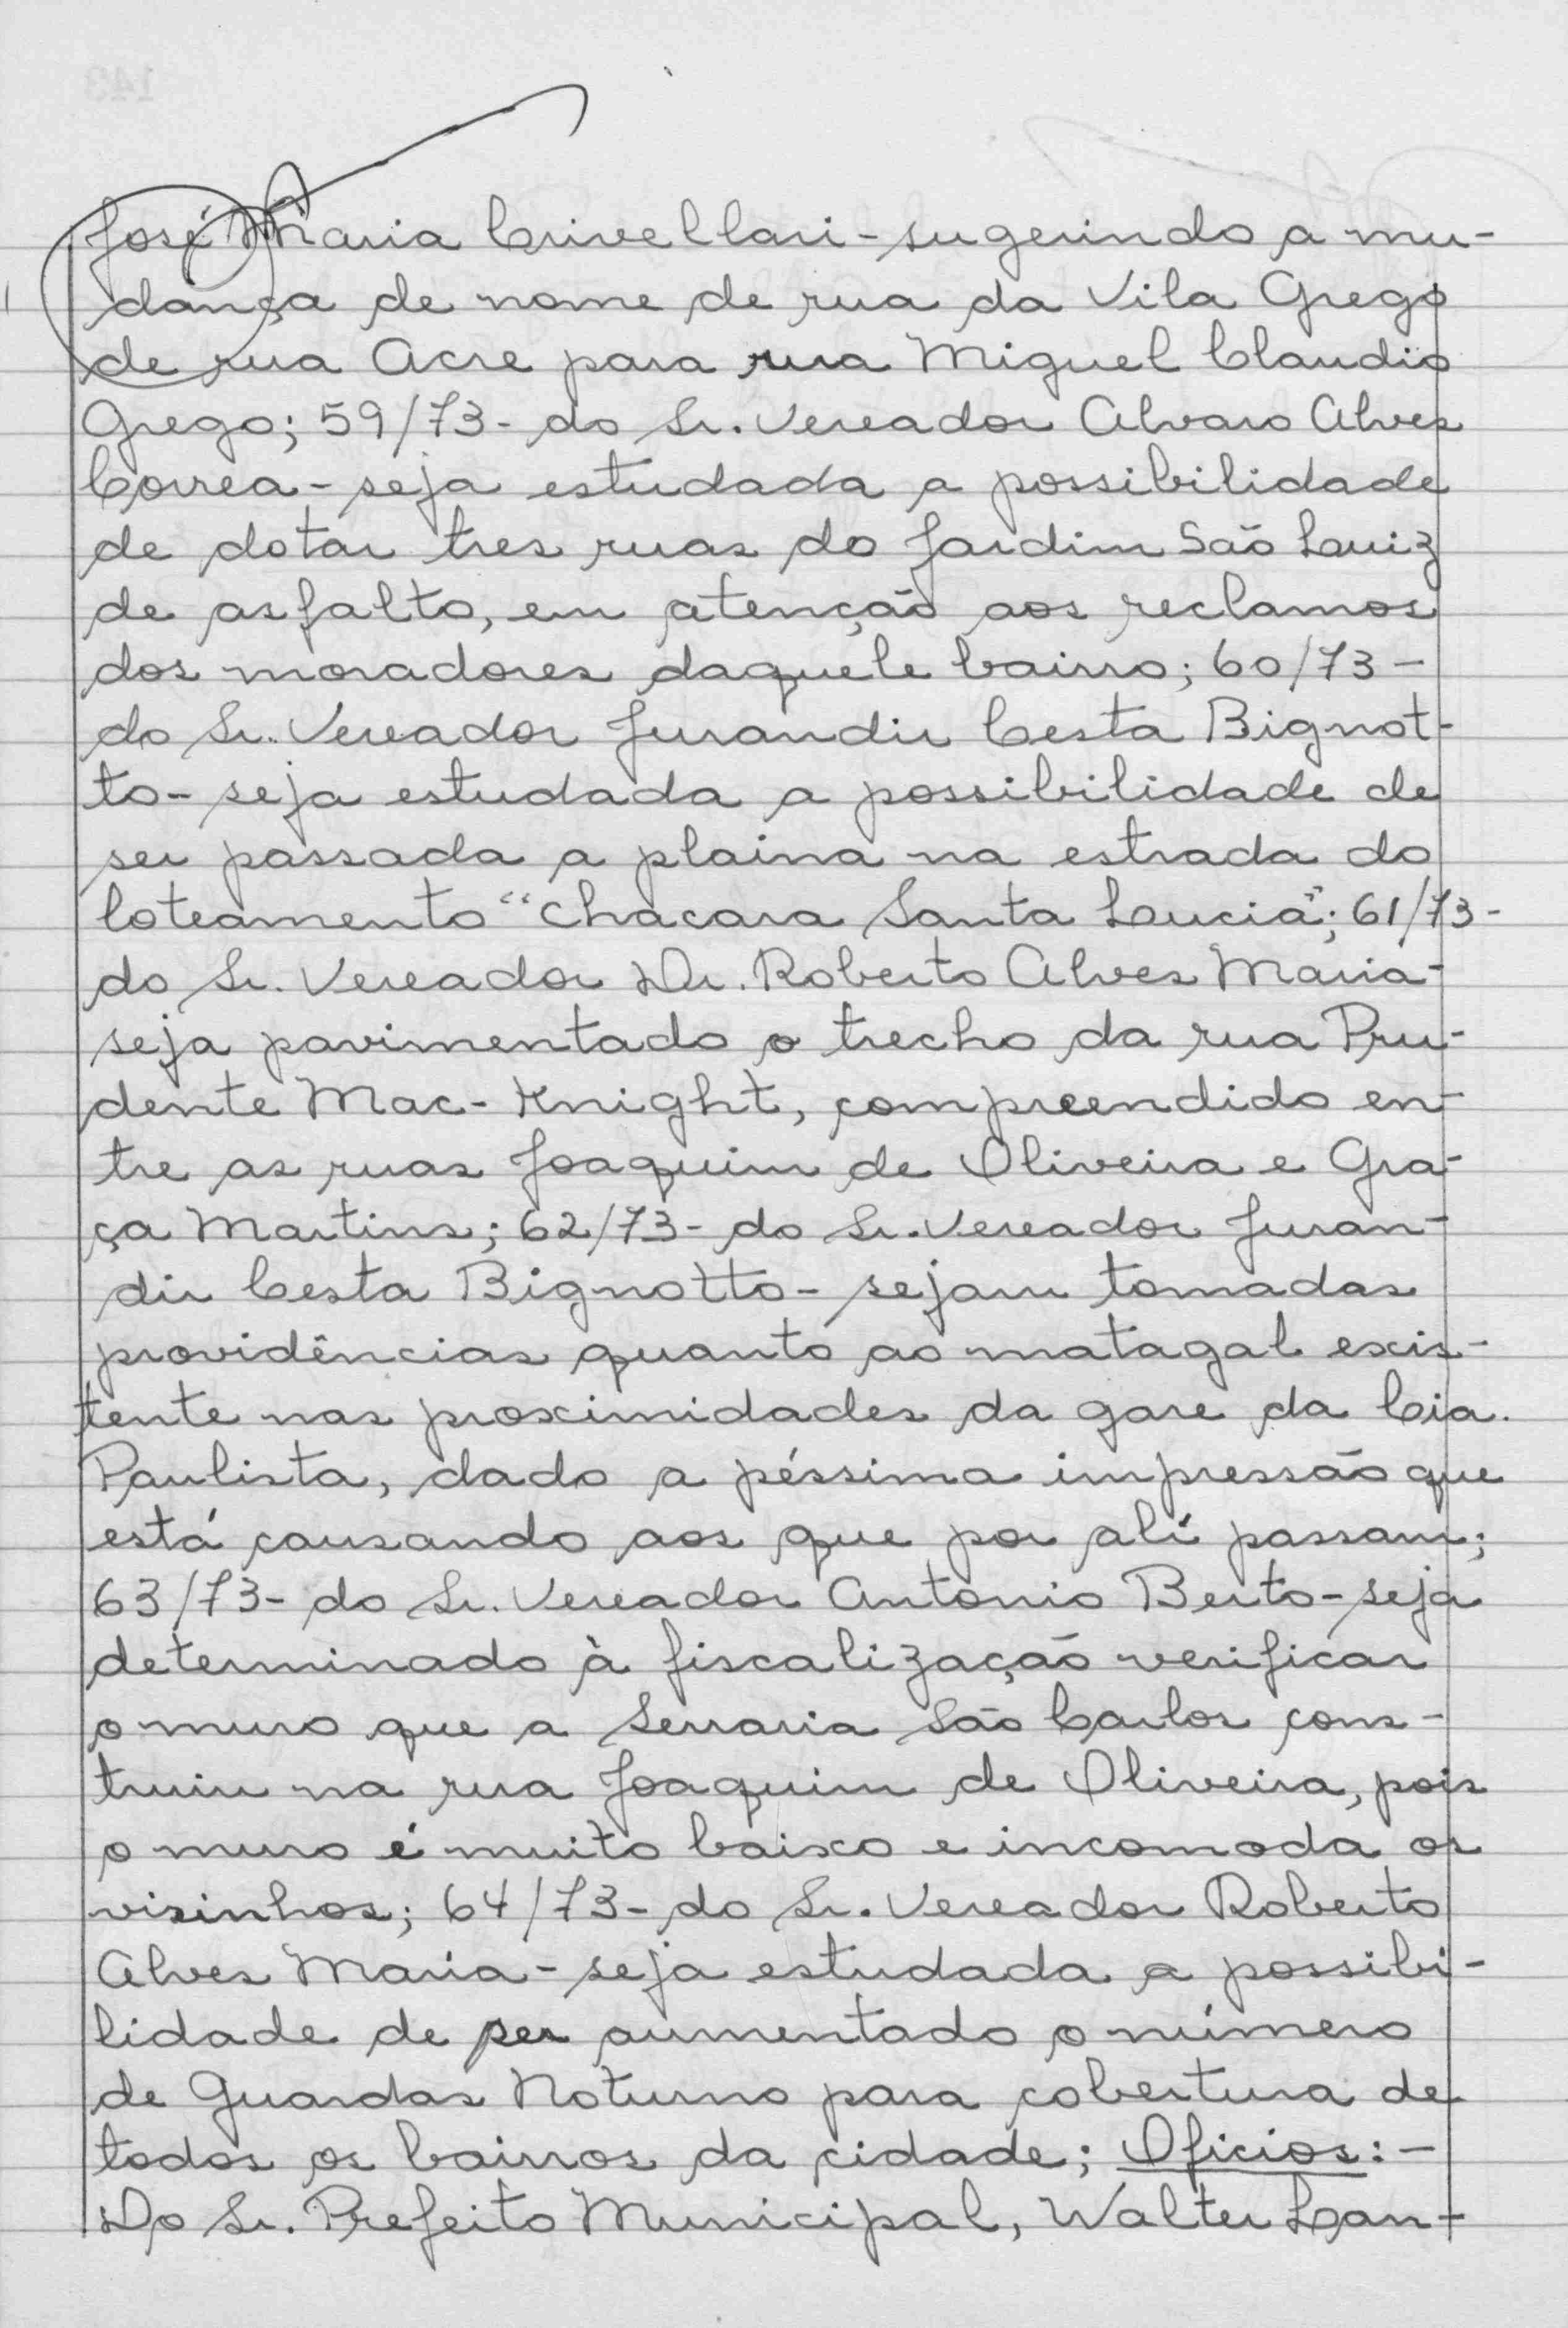 José Maria Crivellari - sugerindo a mu-
dança de nome de rua da Vila Grego
de rua Acre para rua Miguel Claudio
Grego; 59/73 - do Sr. Vereador Alvaro Alves
Correa - seja estudada a possibilidade
de dotar tres ruas do Jardim São Luiz
de asfalto, em atenção aos reclamos
dos moradores daquele bairro; 60/73 -
do Sr. Vereador Jurandir Cesta Bignot-
to - seja estudada a possibilidade de
ser passada a plaina na estrada do
loteamento "Chacara Santa Lucia"; 61/73 -
do Sr. Vereador Dr. Roberto Alves Maria -
seja pavimentado o trecho da rua Pru-
dente Mac-Knight, compreendido en-
tre as ruas Joaquim de Oliveira e Gra-
ça Martins; 62/73 - do Sr. Vereador Juran-
dir Cesta Bignotto - sejam tomadas
providências quanto ao matagal exis-
tente nas proximidades da gare da Cia.
Paulista, dado a péssima impressão que
está causando aos que por alí passam;
63/73 - do Sr. Vereador Antonio Berto - seja
determinado à fiscalização verificar
o muro que a Serraria São Carlos cons-
truiu na rua Joaquim de Oliveira, pois
o muro é muito baixo e incomoda os
visinhos; 64/73 - do Sr. Vereador Roberto
Alves Maria - seja estudada a possibi-
lidade de ser aumentado o número
de Guardas Noturno para cobertura de
todos os bairros da cidade; Oficios: -
Do Sr. Prefeito Municipal, Walter Lan-